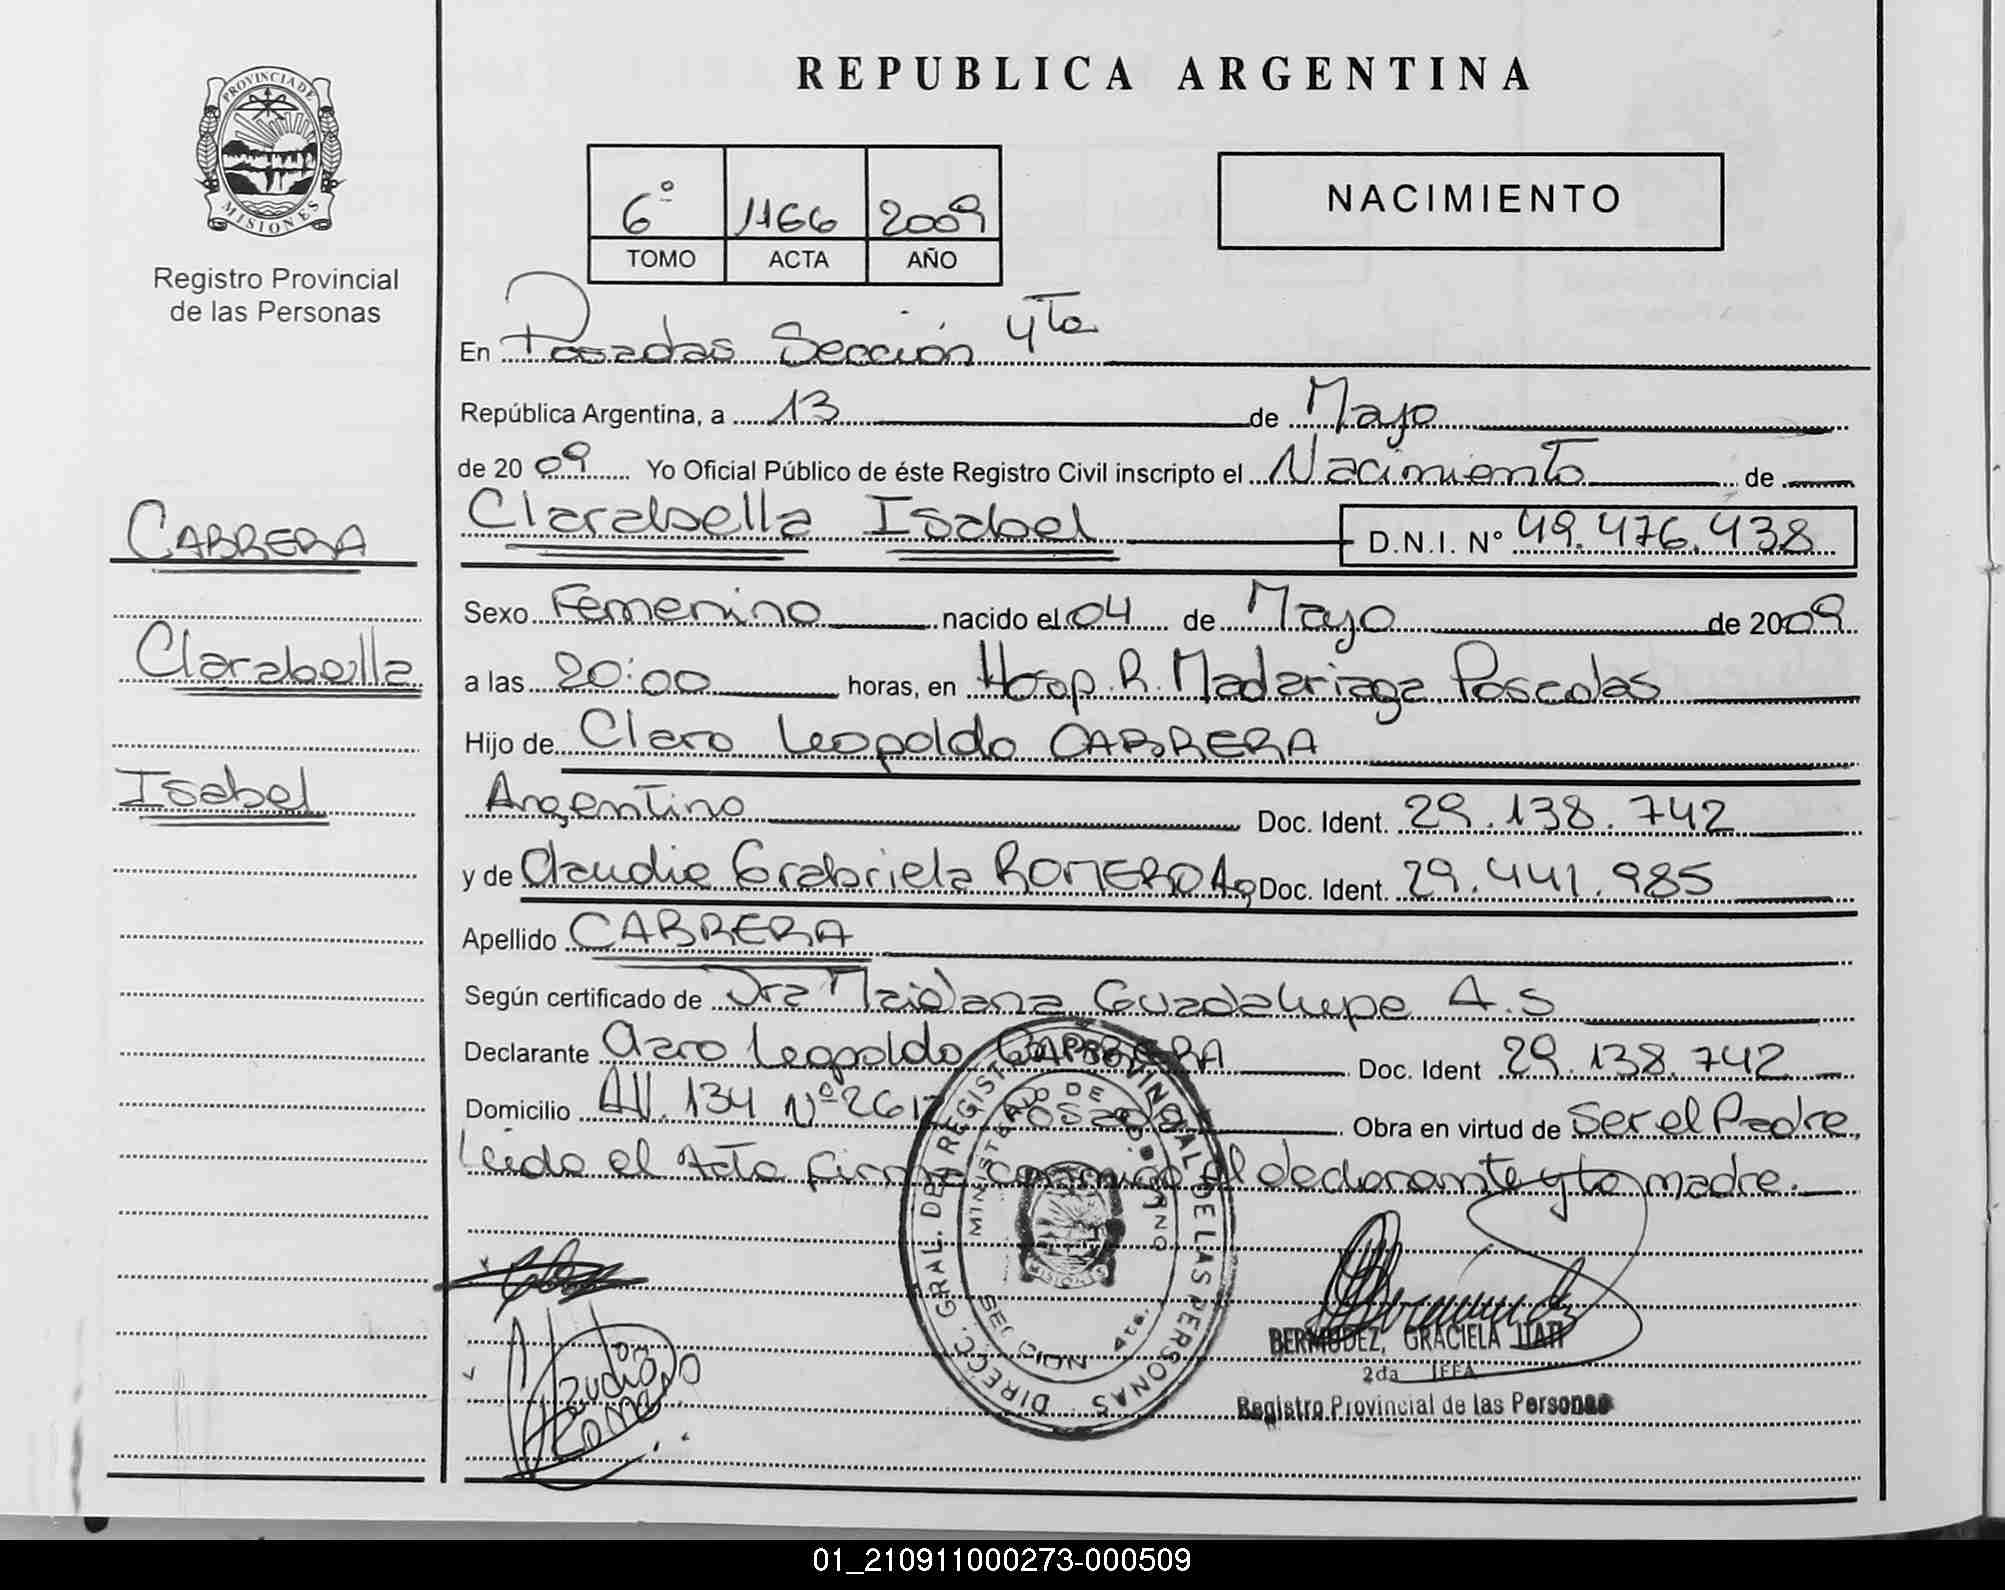 PROVINCIA DE
MISIONES
Registro Provincial
de las Personas
CABRERA
Clarabella
Isabel
REPUBLICA ARGENTINA
6º 1166 2009
TOMO ACTA AÑO
NACIMIENTO
En Posadas Sección 4ta
República Argentina, a 13 de Mayo
de 2009 Yo Oficial Público de éste Registro Civil inscripto el Nacimiento de
Clarabella Isabel D.N.I. Nº 49.476.438
Sexo Femenino nacido el 04 de Mayo de 2009
a las 20:00 horas, en Hosp. R. Madariaga Posadas
Hijo de Claro Leopoldo CABRERA
Argentino Doc. Ident. 29.138.742
y de Claudia Grabriela ROMERO Ag Doc. Ident. 29.441.985
Apellido CABRERA
Según certificado de Dra Maidana Guadalupe A.S
Declarante Claro Leopoldo CABRERA Doc. Ident 29.138.742
Domicilio AV. 134 Nº 2617 Posadas Obra en virtud de Ser el Padre,
Leida el Acta firma conmigo el declarante y la madre.
DIRECC. GRAL. DEL REGISTRO PROVINCIAL DE LAS PERSONAS
MINISTERIO DE GOBIERNO
MISIONES
SECCION 4ta.
Claudia
Romero
BERMUDEZ, GRACIELA ITATI
2da JEFA
Registro Provincial de las Personas
01_210911000273-000509